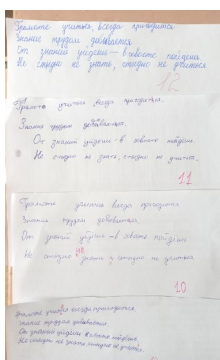 Грамоте учиться всегда пригодится.
Знание трудом добывается.
От знаний уйдёшь – в хвосте пойдёшь
Не стыдно не знать, стыдно не учиться
12
Грамоте учиться всегда пригодится.
Знание трудом добывается.
От знаний уйдёшь – в хвосте пойдёшь.
Не стыдно не знать, стыдно не учиться.
11
Грамоте учиться всегда пригодится
Знания трудом добываются.
От знаний уйдёшь – в хвосте пойдёшь
Не стыдно не знать а стыдно не учиться
10
Грамоте учиться всегда пригодится.
Знание трудом добывается.
От знаний уйдёшь в хвосте пойдёшь
Не стыдно не знать стыдно не учиться.